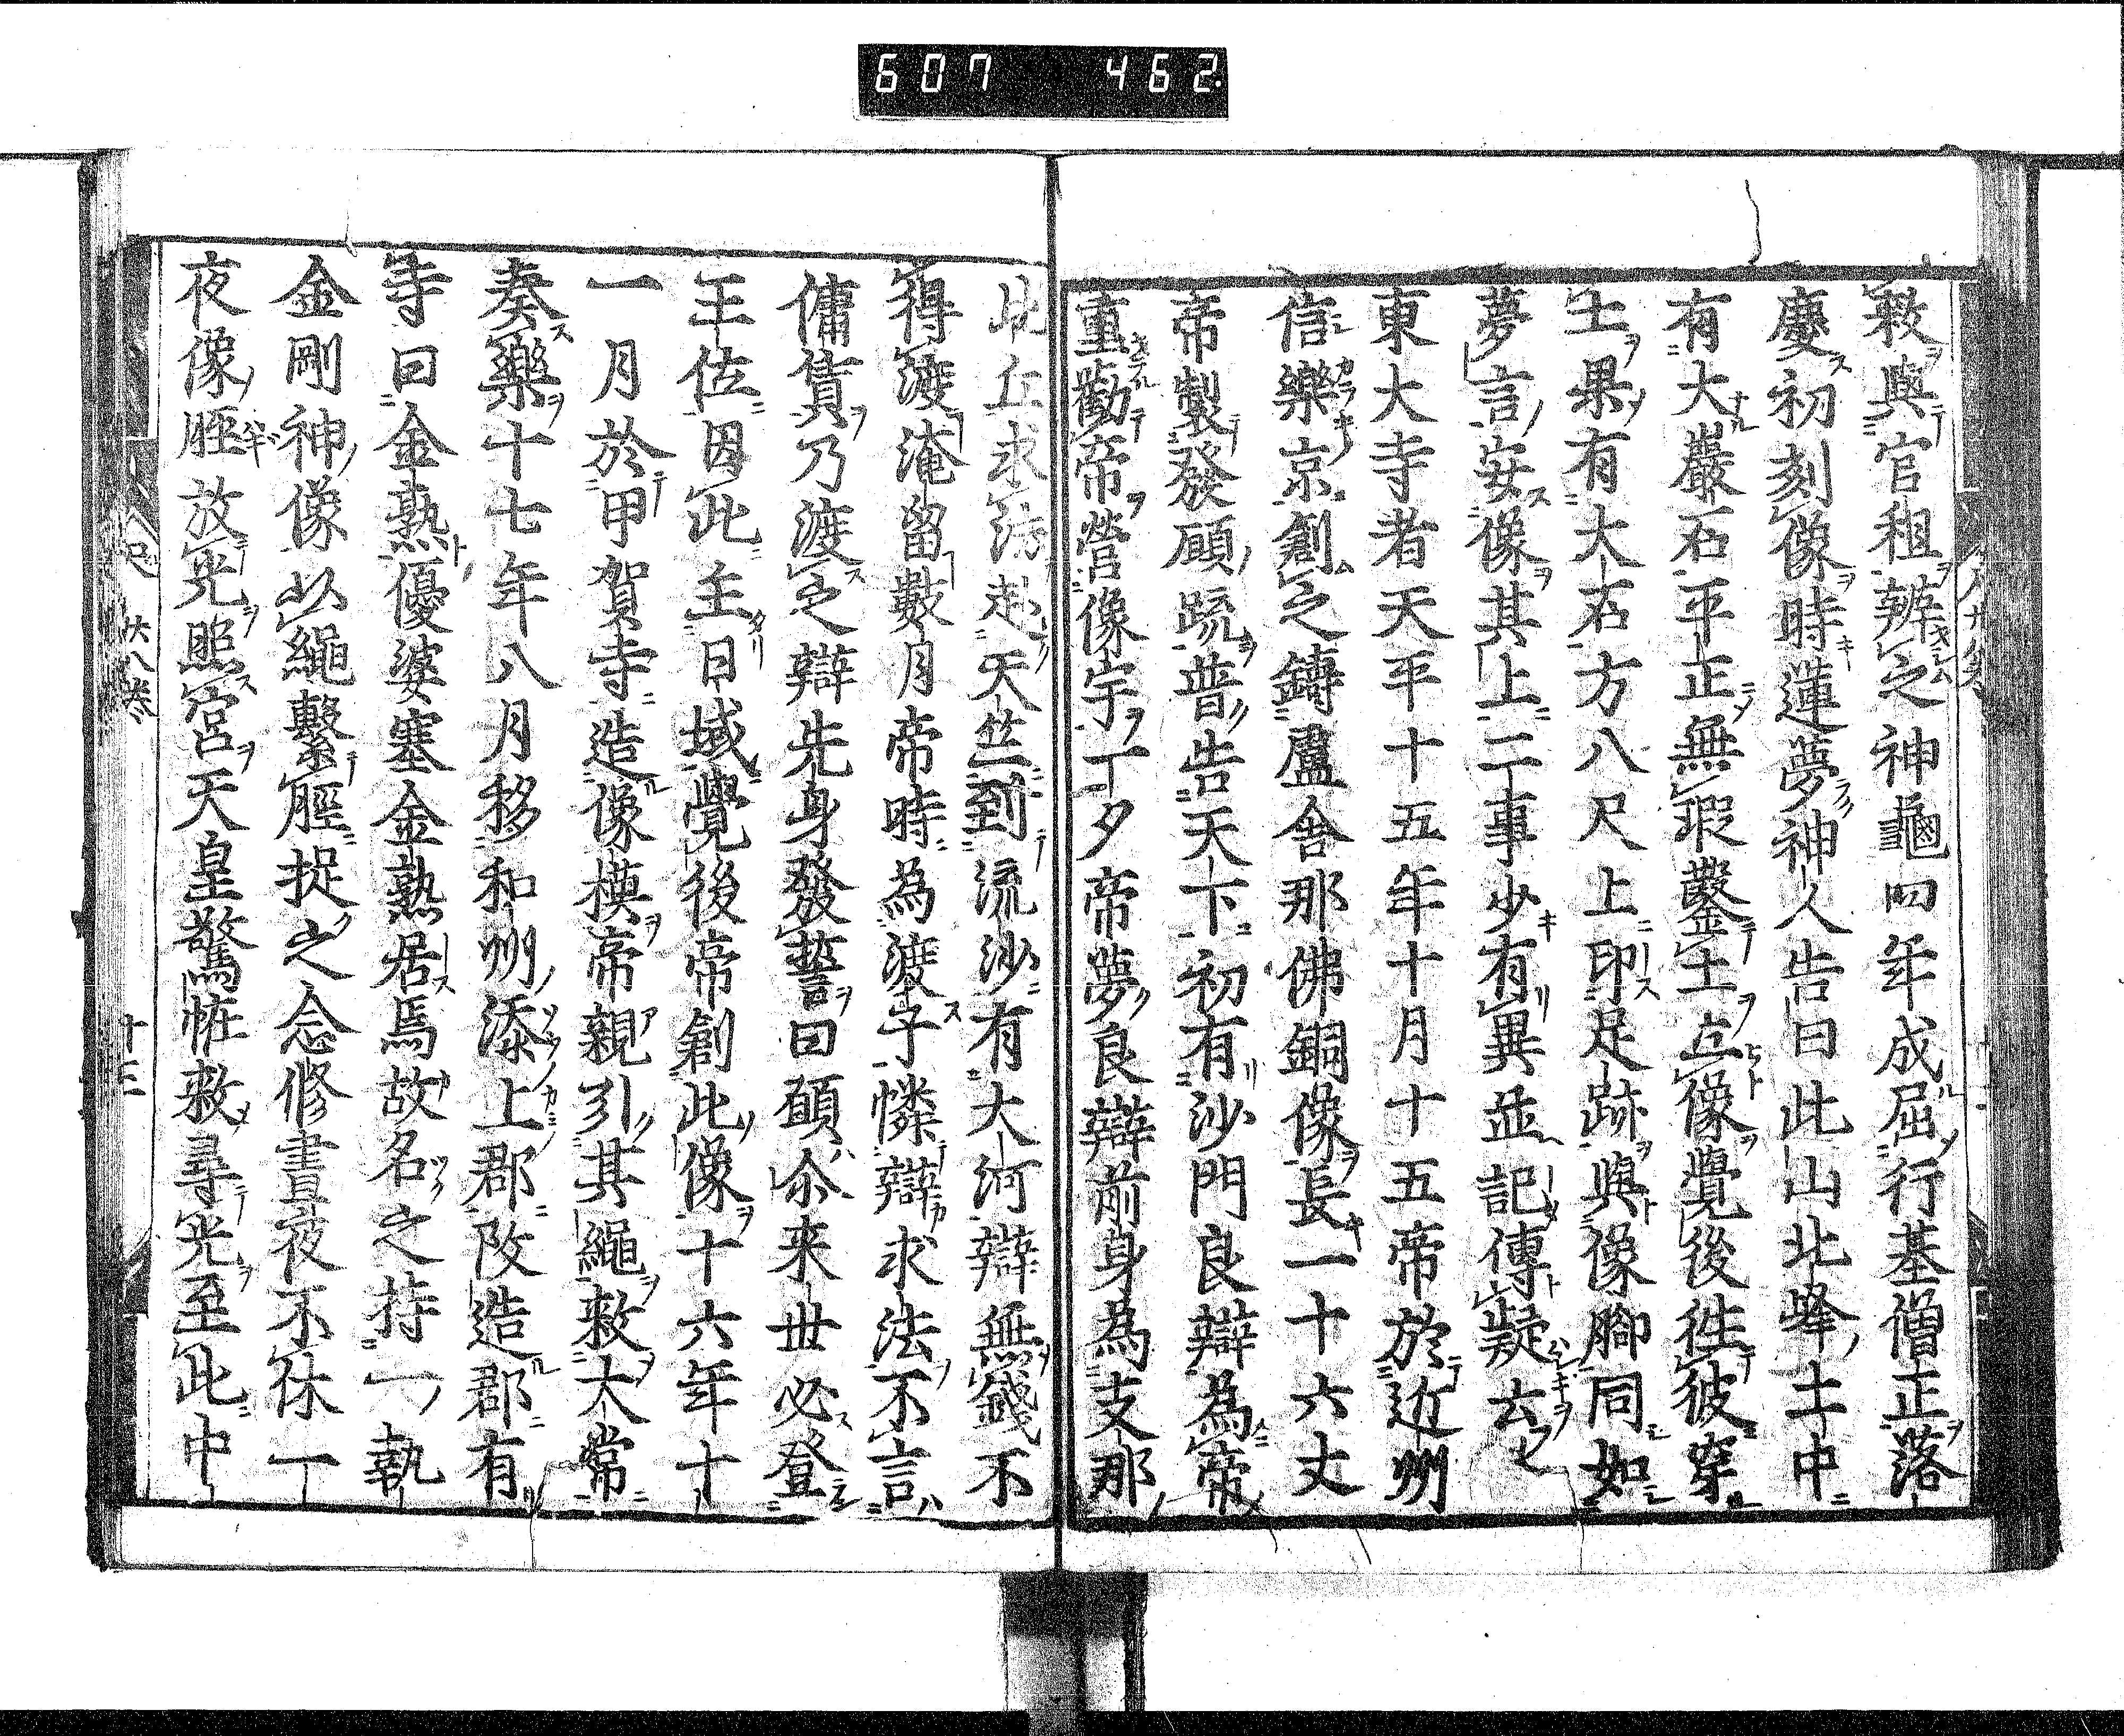 607 462
敕與官租辨之神龜四年成屈行基僧正落
慶初刻像時蓮夢神人告曰此山北峰土中
有大巖石平正無瑕鑿土立像覺後徃彼穿
土果有大石方八尺上印足跡與像腳同如
夢言安像其上二事少有異並記傳疑云
東大寺者天平十五年十月十五帝於近州
信樂京創之鑄盧舍那佛銅像長一十六丈
帝製發願疏普告天下初有沙門良辯為帝
重勸帝營像宇丁夕帝夢良辯前身為支那
比丘求法赴天竺到流沙有大河辯無錢不
得渡淹留數月帝時為渡子憐辯求法不言
傭賃乃渡之辯先身發誓曰願尒来世必登
王位因此主日域覺後帝創此像十六年十
一月於甲賀寺造像模帝親引其繩敕大常
奏樂十七年八月移和州添上郡改造郡有
寺曰金熟優婆塞金熟居焉故名之持一執
金剛神像以繩繫脛捉之念修晝夜不休一
夜像脛放光照宮天皇驚恠敕尋光至此中
廿八巻
十三